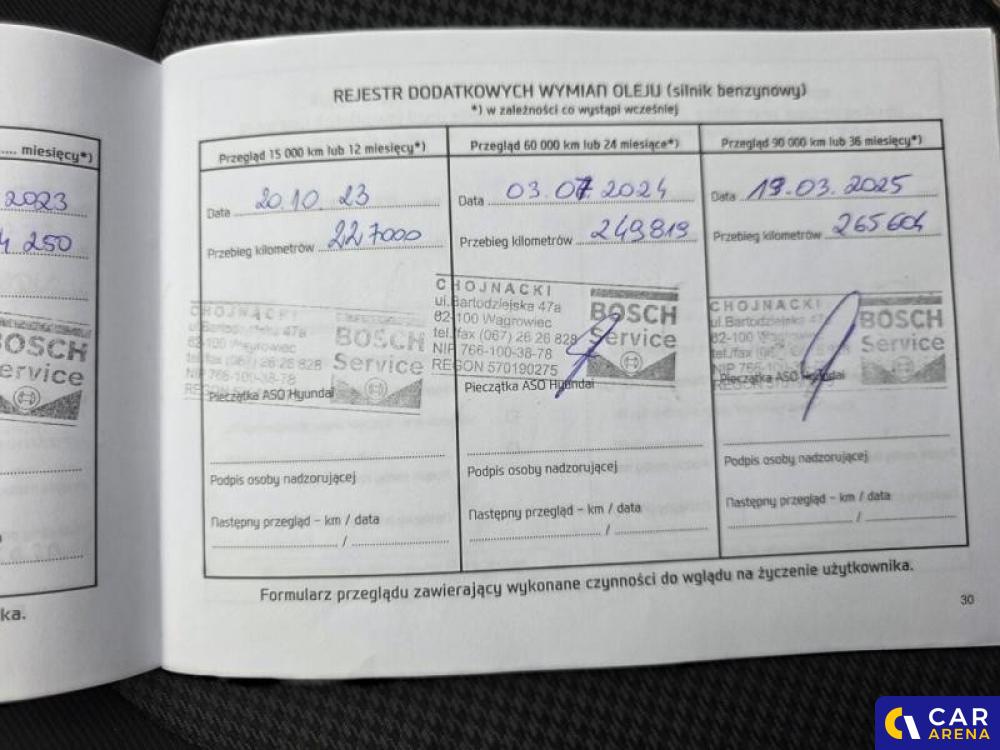 miesięcy*)
2023
250
BOSCH
Service
ka.
REJESTR DODATKOWYCH WYMIAN OLEJU (silnik benzynowy)
*) w zależności co wystąpi wcześniej
Przegląd 15 000 km lub 12 miesięcy*)
Data 20.10.23
Przebieg kilometrów 227000
CHOJNACKI
ul. Bartodziejska 47a
62-100 Wągrowiec
tel./fax (067) 26 26 828
NIP 766-100-38-78
BOSCH
Service
Pieczątka ASO Hyundai
Podpis osoby nadzorującej
Następny przegląd – km / data
/
Przegląd 60 000 km lub 24 miesiące*)
Data 03.07.2024
Przebieg kilometrów 249819
CHOJNACKI
ul. Bartodziejska 47a
62-100 Wągrowiec
tel./fax (067) 26 26 828
NIP 766-100-38-78
REGON 570190275
BOSCH
Service
Pieczątka ASO Hyundai
Podpis osoby nadzorującej
Następny przegląd – km / data
/
Przegląd 90 000 km lub 36 miesięcy*)
Data 19.03.2025
Przebieg kilometrów 265604
CHOJNACKI
ul. Bartodziejska
62-100
tel./fax
NIP 766-100
BOSCH
Service
Pieczątka ASO Hyundai
Podpis osoby nadzorującej
Następny przegląd – km / data
/
Formularz przeglądu zawierający wykonane czynności do wglądu na życzenie użytkownika.
30
CAR
ARENA